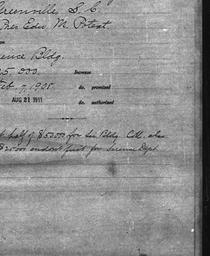 Greenville S. C.
Pres Edw. M. Poteat
ence Bldg.
25,000. Increase
Feb. 7, 1908. do. promised
AUG 21 1911 do. authorized
t half of $50000 for Sci. Bldg. Coll. also
$25000 endowt fund for Science Dept.